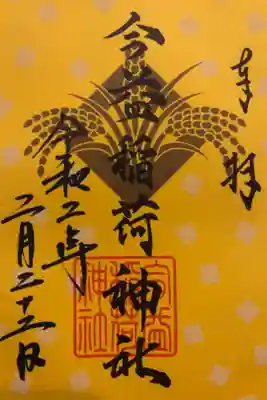 奉拝
稲荷神社
令和二年
二月二十三日
稲荷
神社